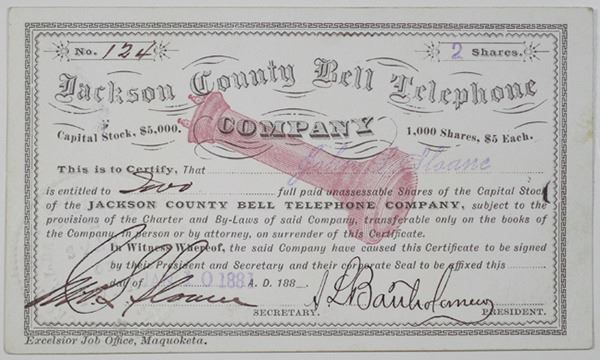 No. 124 2 Shares.
Jackson County Bell Telephone
Capital Stock, $5,000. COMPANY 1,000 Shares, $5 Each.
This is to Certify, That Sloane
is entitled to Two full paid unassessable Shares of the Capital Stock
of the JACKSON COUNTY BELL TELEPHONE COMPANY, subject to the
provisions of the Charter and By-Laws of said Company, transferable only on the books of
the Company, in person or by attorney, on surrender of this Certificate.
In Witness Whereof, the said Company have caused this Certificate to be signed
by their President and Secretary and their corporate Seal to be affixed this
day of 1881 A. D. 188
Sloane Bartholomew
SECRETARY. PRESIDENT.
Excelsior Job Office, Maquoketa.